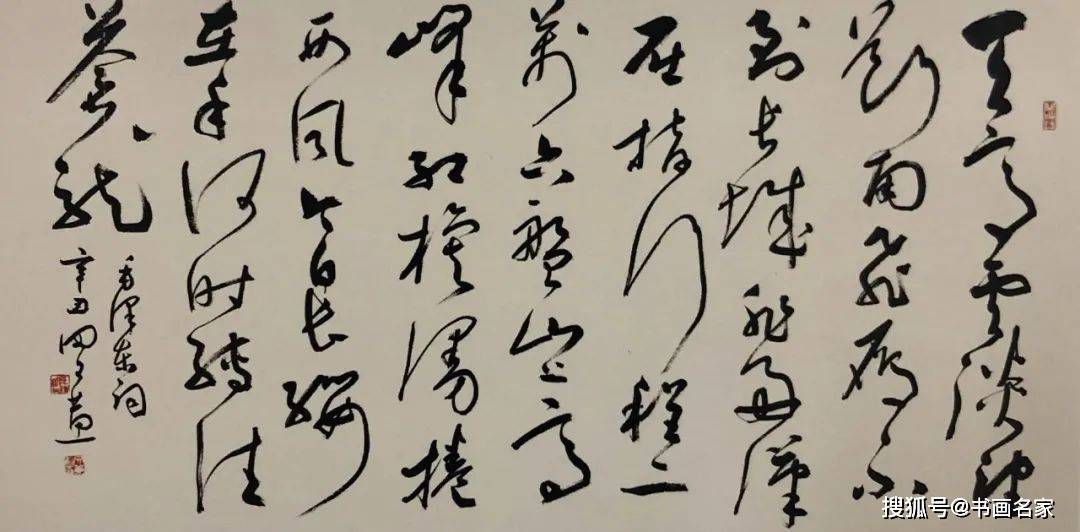 天高雲淡望
断南飛雁不
到长城非好漢
屈指行程二
萬六盘山上高
峰红旗漫捲
西风今日长缨
在手何时缚住
蒼龙
毛泽东词
辛丑
搜狐号@书画名家